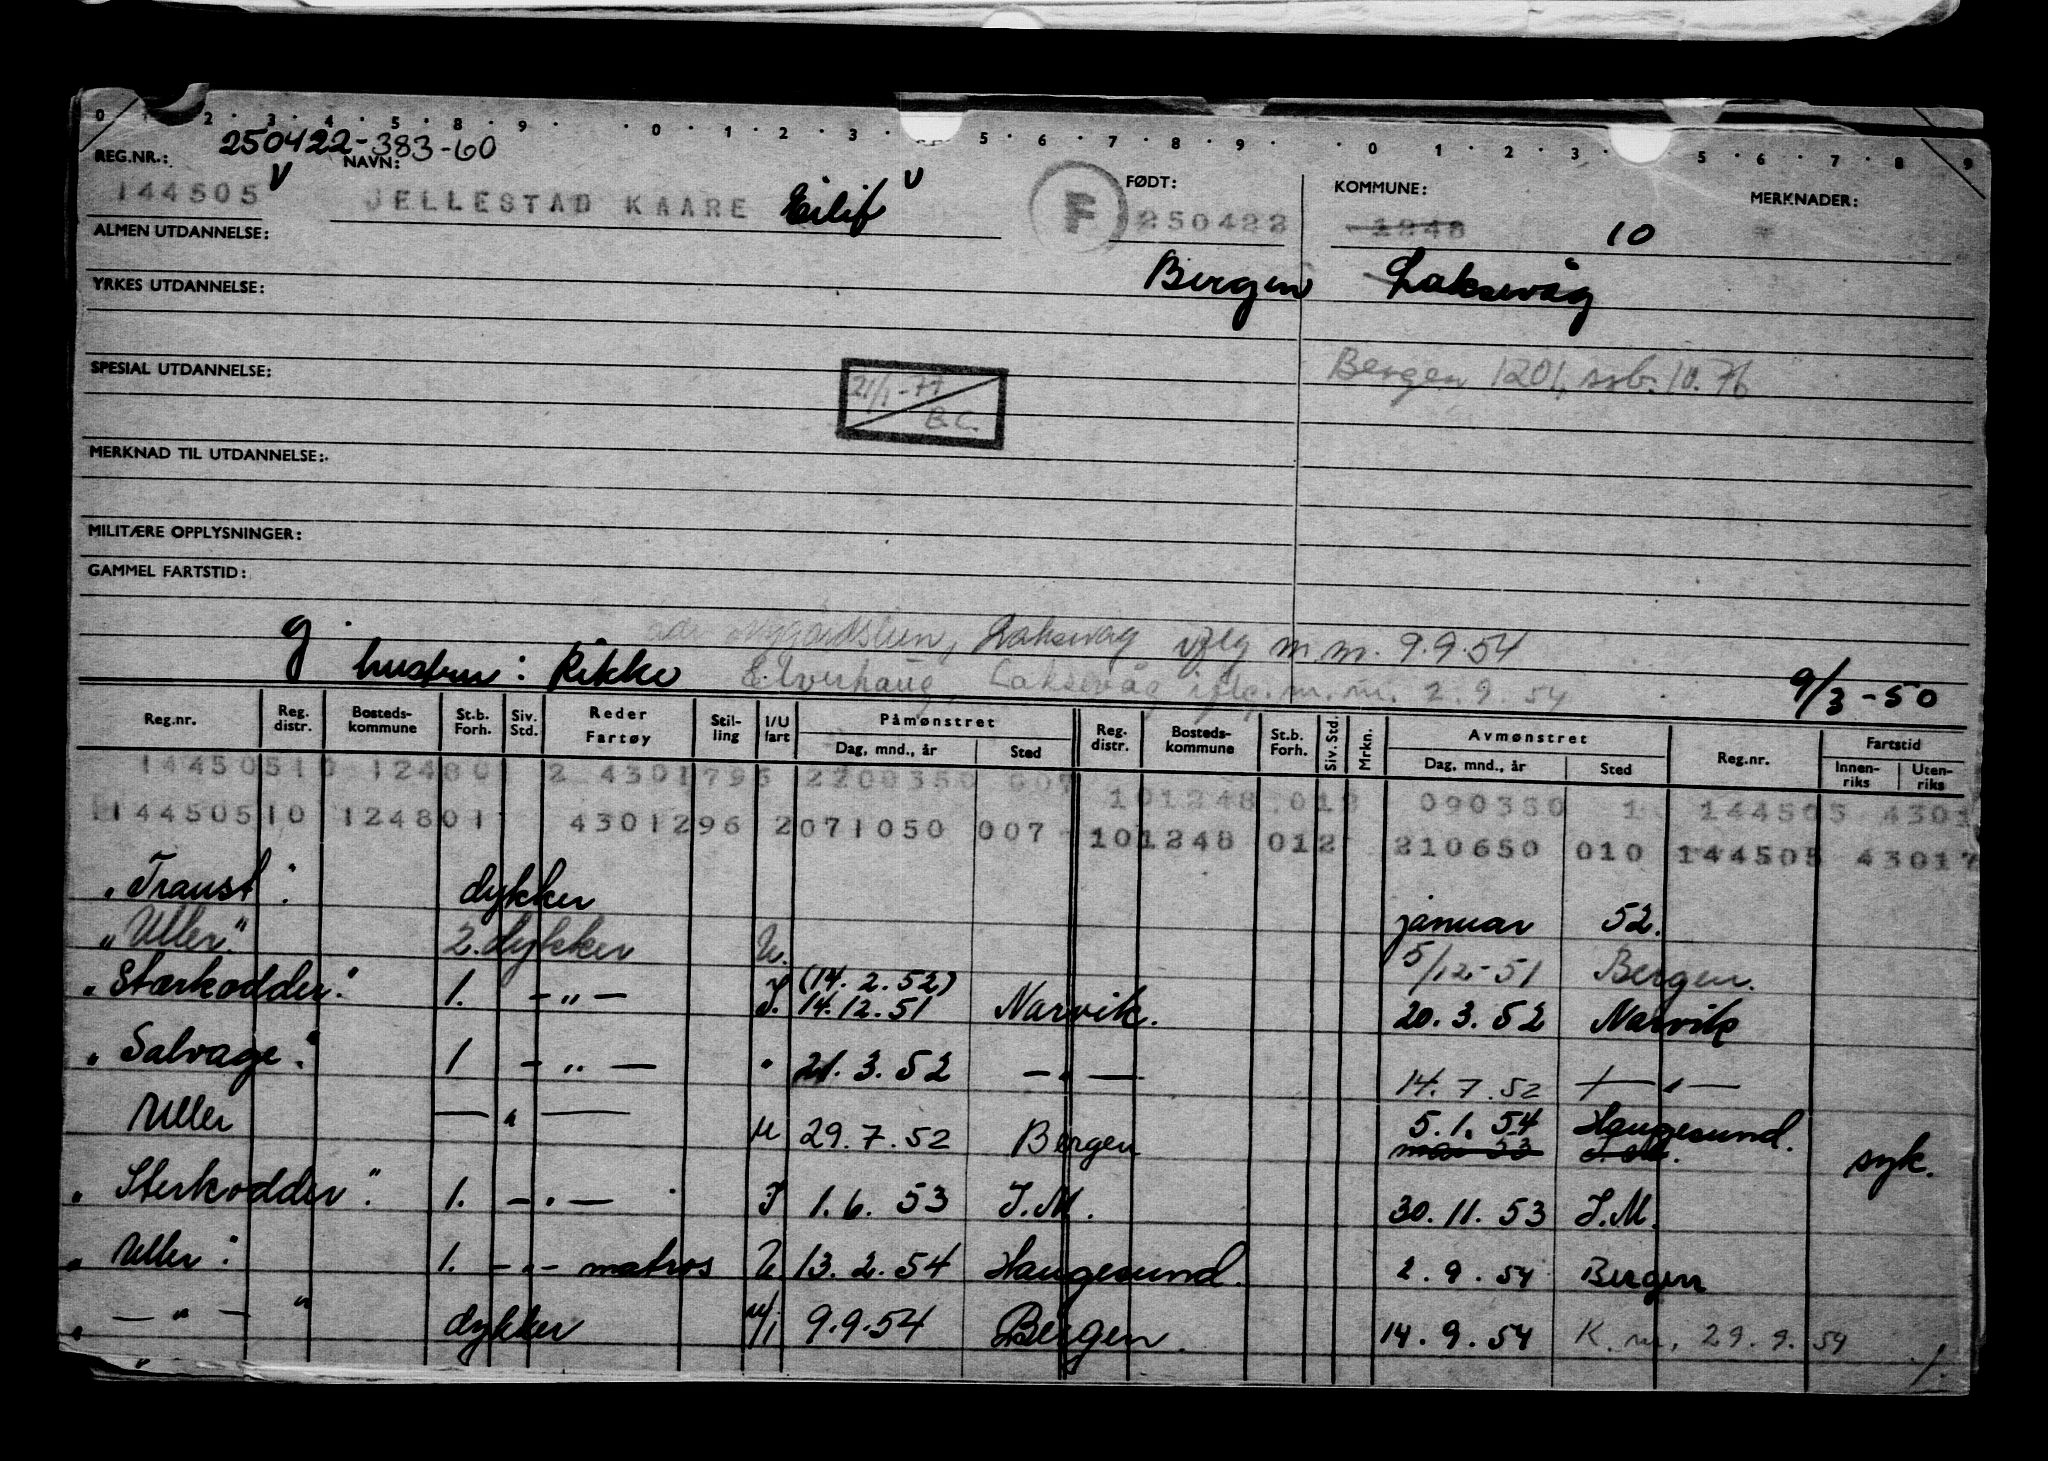 0 1 2 3 4 5 8 9 0 1 2 3 5 6 7 8 9 0 1 2 3 5 6 7 8 9
250422-383-60
REG.NR.: NAVN: FØDT: KOMMUNE: MERKNADER:
144505 V JELLESTAD KAARE Eilif V F 250422 1248 10
ALMEN UTDANNELSE:
Bergen Laksevåg
YRKES UTDANNELSE:
Bergen 1201, 10.76
SPESIAL UTDANNELSE:
21/1-77
B.C.
MERKNAD TIL UTDANNELSE:
MILITÆRE OPPLYSNINGER:
GAMMEL FARTSTID:
Laksevåg iflg m.m. 9.9.54
g hustru: Rikke Elverhaug, Laksevåg iflg. m.m. 2.9.54 9/3-50
Reg.nr. Reg. distr. Bosteds-kommune St.b. Forh. Siv. Std. Reder Fartøy Stil-ling I/U fart Påmønstret Dag, mnd., år Sted Reg. distr. Bosteds-kommune St.b. Forh. Siv. Std. Mrkn. Avmønstret Dag, mnd., år Sted Reg.nr. Fartstid Innen-riks Uten-riks
144505 10 12480 2 4301796 2200350 007 101248 012 090350 1 144505 4301
144505 10 124801 4301296 2071050 007 101248 012 210650 010 144505 43017
"Traust" dykker januar 52.
"Uller" 2. dykker U. 5/12-51 Bergen.
"Starkodder" 1. - " - I. (14.2.52) 14.12.51 Narvik. 20.3.52 Narvik
"Salvage" 1 - " - " 21.3.52 - " - 14.7.52 - " -
Uller - " - U 29.7.52 Bergen 5.1.54 Haugesund. syk.
"Sterkodder" 1. - " - I 1.6.53 I.M. 30.11.53 I.M.
"Uller" 1. - " - matros U 13.2.54 Haugesund. 2.9.54 Bergen
" - " - " dykker U/I 9.9.54 Bergen. 14.9.54 K.m. 29.9.54 1.